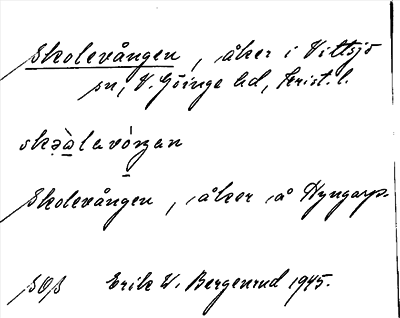 Skolevången, åker i Vittsjö
sn, V. Göinge hd, Krist. l.
Skolevången, åker å Nyngarp.
Erik W. Bergenrud 1945.